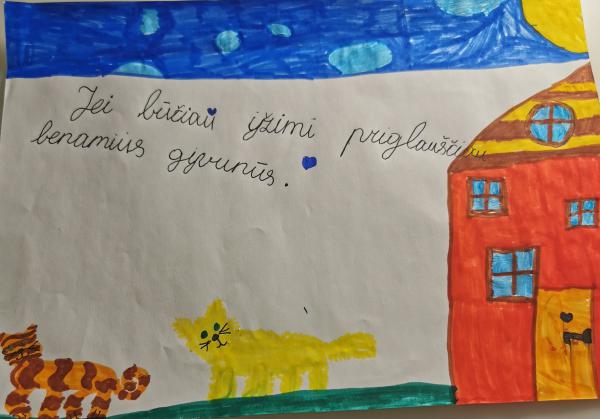 Jei būčiau įžimi priglauščiau
benamius gyvunūs.